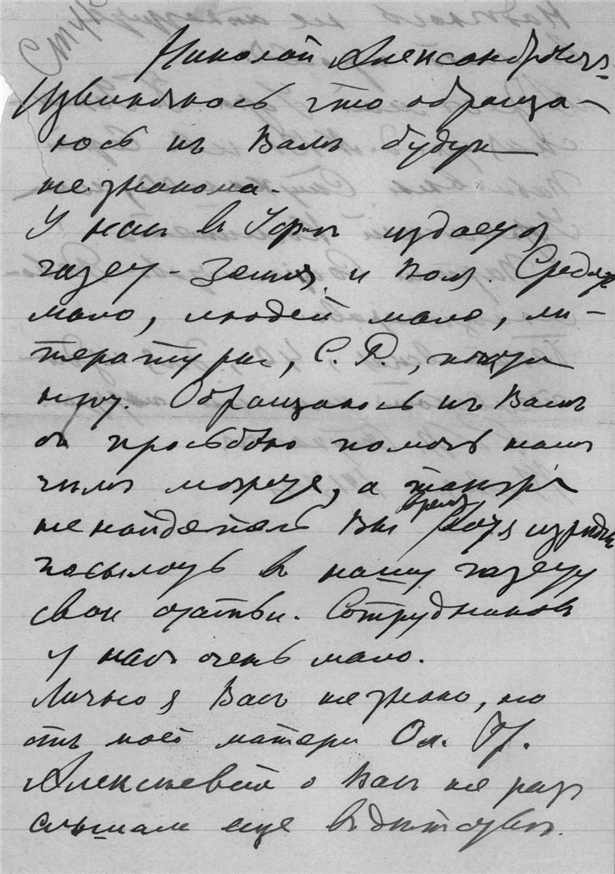 Николай Александровичъ
Извиняюсь что обраща-
юсь къ Вамъ будучи
незнакома.
У насъ въ Уфѣ издается
газета - Земля и Воля. Средствъ
мало, людей мало, ли-
тературы, С. Р., 
нѣту. Обращаюсь къ Вамъ
съ просьбою помочь намъ
чѣмъ можете, а также
не найдете ли Вы время хотя изрѣдка
посылать въ нашу газету
свои статьи. Сотрудниковъ
у насъ очень мало.
Лично я Васъ не знаю, но
отъ моей матери Ол. Гр.
Алексѣевой о Васъ не разъ
слышала еще въ дѣтствѣ.